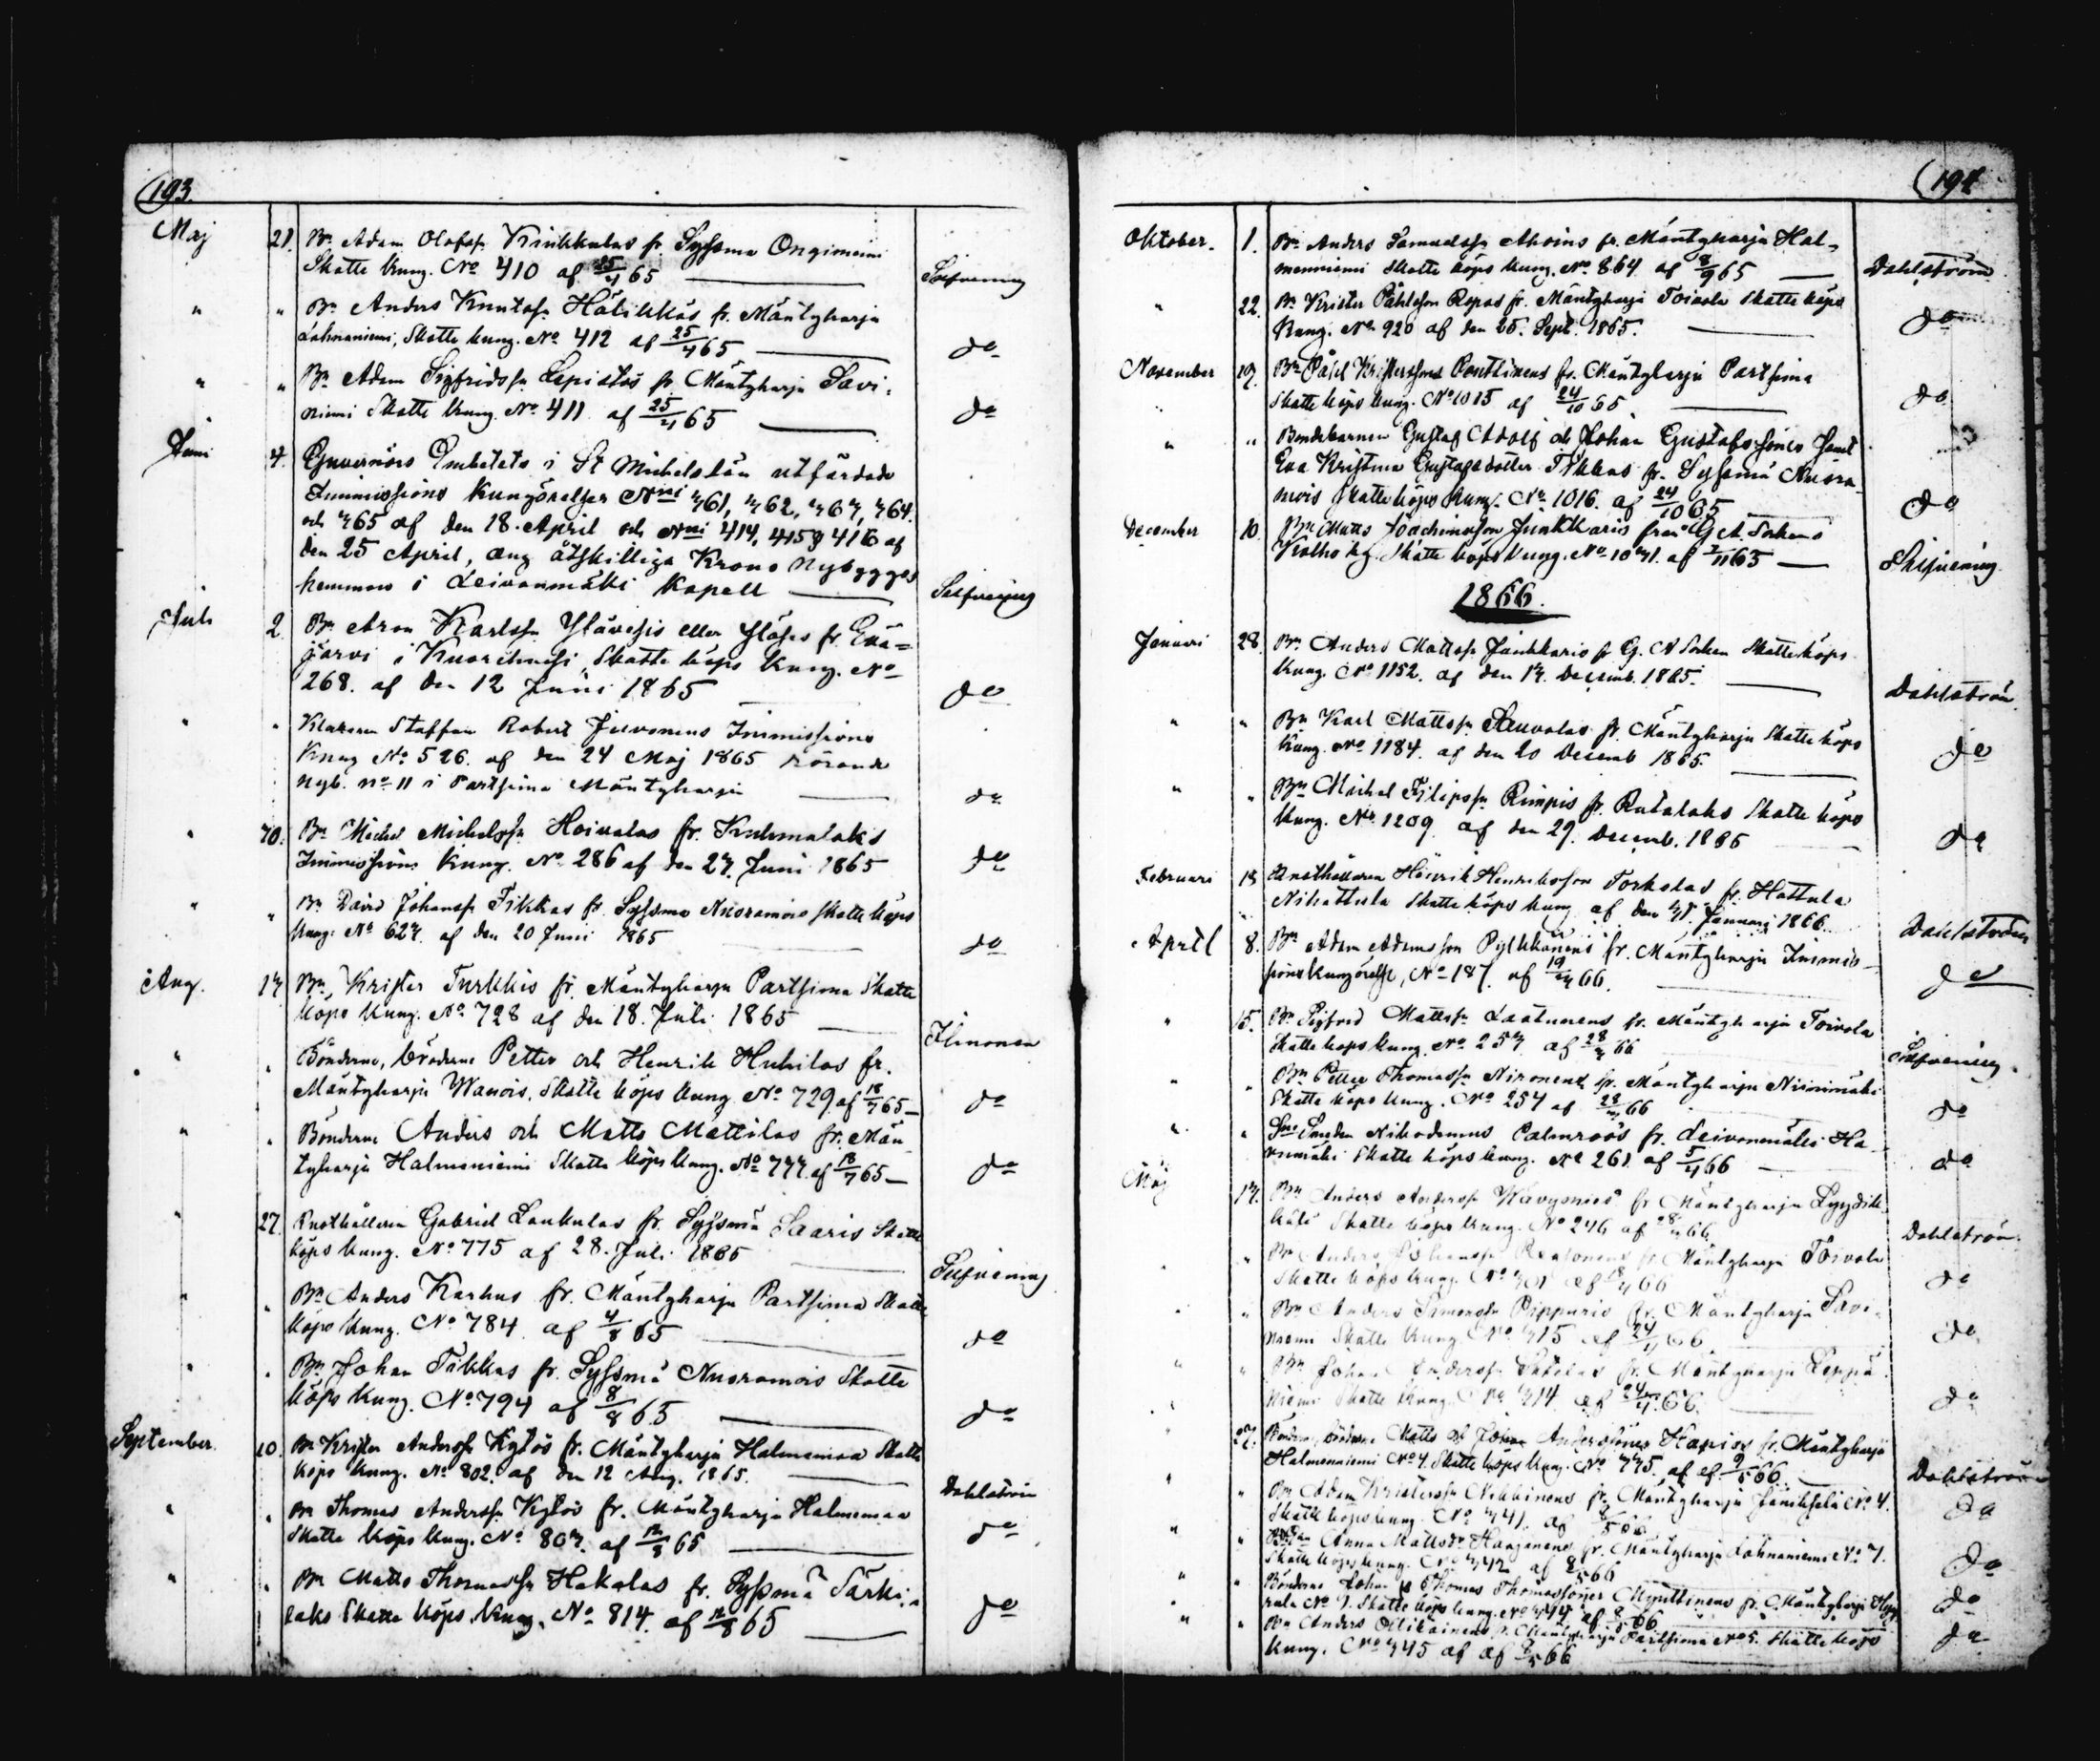 193.
Maj 21. Bn Adam Olofsn Krinkkulas fr. Syssma Ongioniemi
Skatte kung. No 410 af 25/4 65 Selfvening
" " Bn Anders Knutsn Hölikkäs fr. Mäntyharju
Lahnaniemi, Skatte kung. No 412 af 25/4 65 do
" " Bn Adam Sigfridssn Lepistös fr. Mäntyharju Savi-
niemi Skatte kung. No 411 af 25/4 65 do
Juni 4. Guvernörs Embetets i St Michels län utfärdade
Immissions kungörelser
och 365 af den 18 April och Nri 414, 415 & 416 af
den 25 April, ang åtskilliga Krono nybygges
hemman i Leivonmäki Kapell Selfvening
Juli 2. Bn Aron Karlssn fr. Evä=
järvi i Kuorehvesi, Skatte köps kung. No
268. af den 12 Juni 1865 do
" " Klararen Staffan Robert Juvonens Immissions
kung No 526. af den 24 Maj 1865 rörande
nyb. no 11 i Partsima Mäntyharju do
" Bn Michel Michelssn Hoivalas fr. Kuhmalaks
Immissions kung. No 286 af den 27. Juni 1865 do
" " Bn David Johanssn Tikkas fr. Syssma Nuoramois Skatte köps
kung. No 627. af den 20 Juni 1865 do
Aug. 13 Bn Krister Turkkis fr. Mäntyharju Partsima Skatte
köps kung. No 728 af den 18. Juli 1865 Ilmonen
" " Bönderne, bröderne Petter och Henrik Huhilas fr.
Mäntyharju Wanois, Skatte köps kung No 729. af 18/7 65 do
" " Bönderne Anders och Matts Mattilas fr. Män
tyharju Halmeniemi Skatte köps kung. No 737. af 18/7 65 do
" 27. Rusthållaren Gabriel Laukulas fr. Syssmä Saaris Skatte
köps kung. No 775 af 28. Juli 1865 Selfvening
" " Bn Anders Karhus fr. Mäntyharju Partsima Skatte
köps kung. No 784 af 4/8 65 do
" " Bn Johan Tikkas fr. Syssmä Nuoramois Skatte
köps kung. No 794 af 8/8 65 do
September 10. Bn Krister Anderssn Kytös fr. Mäntyharju Halmemaa Skatte
köps kung. No 802. af den 12 Aug. 1865. Dahlström
" " Bn Thomas Anderssn Kytös fr. Mäntyharju Halmemaa
Skatte köps kung. No 803. af 12/8 65 do
" " Bn Matts Thomassn Hakalas fr. Syssmä Särki-
laks Skatte köps kung. No 814. af 12/8 65 do
194
Oktober. 1. Bn Anders Samuelssn Ahoins fr. Mäntyharju Hal-
menniemi Skatte köps kung. No 864 af 8/9 65 Dahlström
" 22. Bn Krister Påhlsson Repos fr. Mäntyharju Toivola Skatte köps
kung. No 920 af den 25. Sept. 1865. do
November 19. Bn Påhl Kristerssons Ponttinens fr. Mäntyharju Partsima
Skatte köps kung. No 1015 af 24/10 65 do
" " Bondebarnen Gustaf Adolf och Johan Gustafssöners samt
Eva Kristina Gustafsdotter Tikkas fr. Syssmä Nuora-
mois Skatte köps kung. No 1016. af 24/10 65 do
December 10. Bn Matts Joachimsson Junkkaris från G A. Sockens
Skatte köps kung. No 1071. af 65 Selfvening
1866.
Januari 28. Bn Anders Mattssn Junkkaris fr G. A Socken Skatte köps
kung. No 1152. af den 13. Decemb. 1865. Dahlström
" " Bn Karl Mattssn Sauvalas fr. Mäntyharju Skatte köps
kung. No 1184. af den 20 Decemb 1865. do
" " Bn Michel Filipssn Rimpis fr. Rutalaks Skatte köps
kung. No 1209 af den 29. Decemb. 1865 do
Februari 18 Rusthållaren Henrik Henriksson Torkolas fr. Hattula
Nihattula Skatte köps kung. af den Januari 1866. Dahlström
April 8. Bn Adam Adamsson Pylkkänens fr. Mäntyharju Immis-
sions kungörelse, No 187. af 66. do
" 15. Bn Sigfrid Mattssn Laatunens fr. Mäntyharju Toivola
Skatte köps kung. No 253 af 28/3 66 Selfvening
" " Bn Petter Thomassn Nironens fr. Mäntyharju Niinimäki
Skatte köps kung. No 254 af 28/3 66 do
" " Smeden Nikodemus Palmroos fr. Leivonmäki Ha-
rumäki Skatte köps kung. No 261 af 5/4 66 do
Maj 13. Bn Anders Anderssn fr Mäntyharju
Skatte köps kung. No 246 af 66 Dahlström
" " Bn Anders Johanssn fr Mäntyharju Toivola
Skatte köps kung. No af 66 do
" " Bn Anders Simonssn Pippuris fr. Mäntyharju Savi-
niemi Skatte kung No 315 af 24/4 66 do
" " Bn Johan Anderssn fr. Mäntyharju Leppä
niemi Skatte kung. No 314 af 24/4 66 do
" 27. Bönderne, bröderne Matts och Johan Anderssöners Hapios fr. Mäntyharju
Halmenniemi No 4. Skatte köps kung. No 375. af af 9/5 66 Dahlström
" " Bn Adam Kristerssn Nikkinens fr. Mäntyharju No 4.
Skatte köps kung. No 341. af 8/5 66 do
" " Anna Mattsdr Haajanens fr. Mäntyharju Lahnaniemi No 7.
Skatte köps kung. No 342 af 8/5 66 do
" " Bönderne Johan & Thomas Thomassöners Mynttinens fr. Mäntyharju
No 1. Skatte köps kung. No af 8/5 66. do
" " Bn Anders Ollikainens fr. Mäntyharju Partsima No 5. Skatte köps
kung. No 345 af af 8/5 66 do